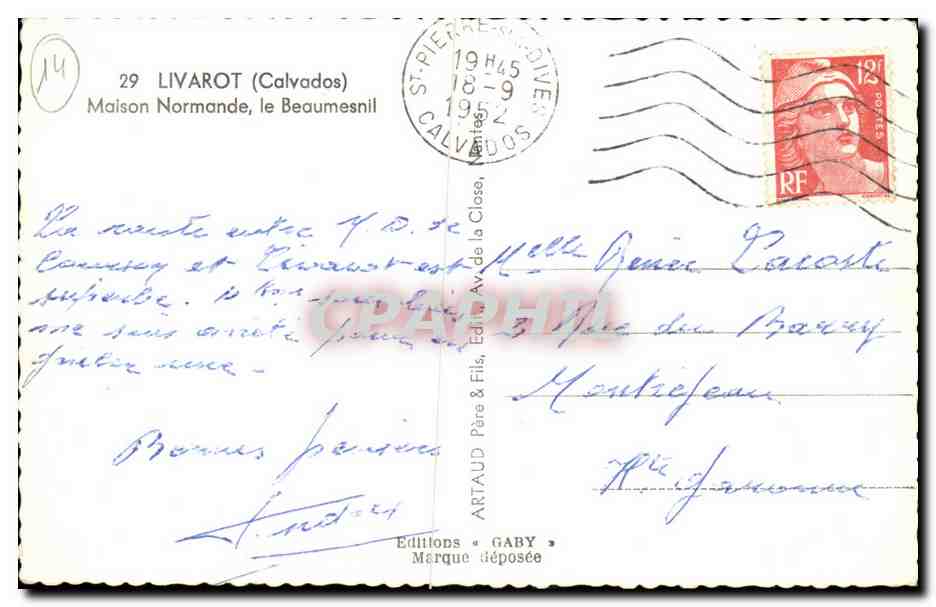 14
29 LIVAROT (Calvados)
Maison Normande, le Beaumesnil
ST-PIERRE-SUR-DIVES
19 H45
18 -9
1952
CALVADOS
12F
POSTES
RF
La route entre N. D. de
Courson et Livarot est
superbe. 10 Km
me suis arrêté pour en
goûter une.
Bonnes pensées
ARTAUD Père & Fils, Edit., Av. de la Close, Nantes
CPAPHIL
Melle Lacoste
3 Rue du Barry
Montréjeau
Hte Garonne
Editions « GABY »
Marque déposée